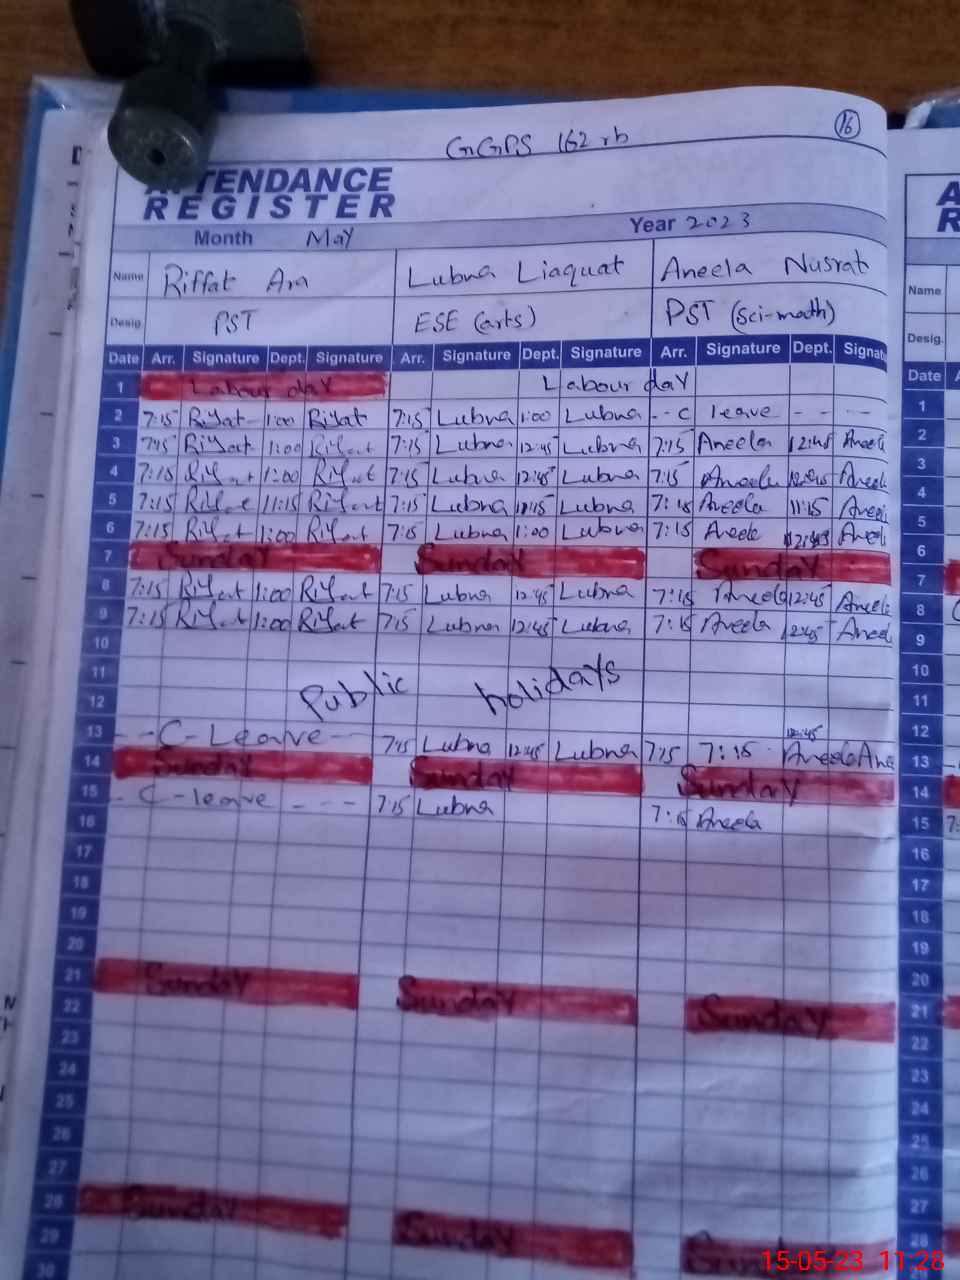 GGPS 162 rb
16
ATTENDANCE
REGISTER
Month May Year 2023
Name Riffat Ara Lubna Liaquat Aneela Nusrat
Desig. PST ESE (arts) PST (Sci-math)
Date Arr. Signature Dept. Signature Arr. Signature Dept. Signature Arr. Signature Dept. Signatu
1 Labour day Labour day
2 7:15 Riffat 1:00 Riffat 7:15 Lubna 1:00 Lubna -- C leave - - - --
3 Riffat 1:00 Riffat 7:15 Lubna 12:45 Lubna 7:15 Aneela 12:45 Aneela
4 7:15 Riffat 1:00 Riffat 7:15 Lubna 12:45 Lubna 7:15 Aneela Aneel
5 7:15 Riffat 11:15 Riffat 7:15 Lubna 11:15 Lubna 7:15 Aneela 11:15 Aneel
6 7:15 Riffat 1:00 Riffat 7:15 Lubna 1:00 Lubna 7:15 Aneela Aneel
7 Sunday Sunday Sunday
8 7:15 Riffat 1:00 Riffat 7:15 Lubna 12:45 Lubna 7:15 Aneela 12:45 Aneela
9 7:15 Riffat 1:00 Riffat 7:15 Lubna 12:45 Lubna 7:15 Aneela 12:45 Aneel
10
11 Public holidays
12
13 - - - C-Leave - - 7:15 Lubna 12:45 Lubna 7:15 7:15 12:45 Aneela Ane
14 Sunday Sunday Sunday
15 - C-leave - - - - 7:15 Lubna 7:15 Aneela
16
17
18
19
20
21 Sunday Sunday Sunday
22
23
24
25
26
27
28 Sunday Sunday Sunday
29
30
A
R
Name
Desig.
Date A
1
2
3
4
5
6
7
8
9
10
11
12
13
14
15 7:
16
17
18
19
20
21
22
23
24
25
26
27
28
15-05-23 11:28